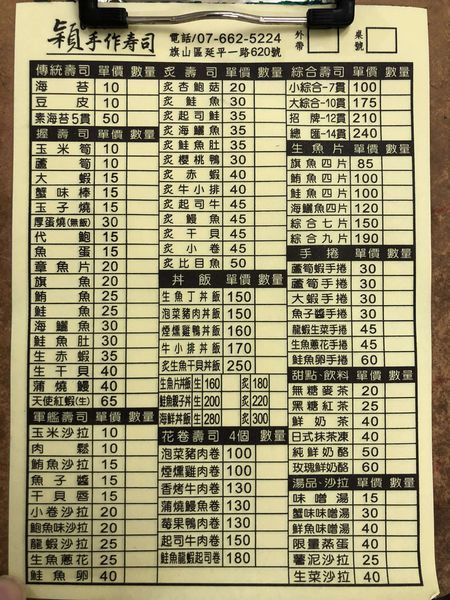 穎手作寿司
電話/07-662-5224
旗山區延平一路620號
外帶
桌號
傳統壽司 單價 數量
海苔 10
豆皮 10
素海苔5貫 50
握壽司 單價 數量
玉米筍 10
蘆筍 10
大蝦 15
蟹味棒 15
玉子燒 15
厚蛋燒(無飯) 30
代鮑 15
魚蛋 15
章魚片 20
旗魚 25
鮪魚 25
鮭魚 25
海鱺魚 30
鮭魚肚 30
生赤蝦 35
生干貝 40
蒲燒鰻 40
天使紅蝦(生) 65
軍艦壽司 單價 數量
玉米沙拉 10
肉鬆 10
鮪魚沙拉 15
魚子醬 15
干貝唇 15
小卷沙拉 20
鮑魚味沙拉 20
龍蝦沙拉 25
生魚蔥花 25
鮭魚卵 40
炙壽司 單價 數量
炙杏鮑菇 20
炙鮭魚 30
炙起司鮭 35
炙海鱺魚 35
炙鮭魚肚 35
炙櫻桃鴨 30
炙赤蝦 40
炙牛小排 40
炙起司牛 45
炙鰻魚 45
炙干貝 45
炙小卷 45
炙比目魚 50
丼飯 單價 數量
生魚丁丼飯 150
泡菜豬肉丼飯 150
煙燻雞鴨丼飯 160
牛小排丼飯 170
炙生魚干貝丼飯 250
生魚片丼飯 生160 炙180
鮭魚親子丼 生200 炙220
海鮮丼飯 生280 炙300
花卷壽司 4個 數量
泡菜豬肉卷 100
煙燻雞肉卷 100
香烤牛肉卷 130
蒲燒鰻魚卷 130
莓果鴨肉卷 130
起司牛肉卷 150
鮭魚龍蝦起司卷 180
綜合壽司 單價 數量
小綜合-7貫 100
大綜合-10貫 175
招牌-12貫 210
總匯-14貫 240
生魚片 單價 數量
旗魚四片 85
鮪魚四片 100
鮭魚四片 100
海鱺魚四片 120
綜合七片 150
綜合九片 190
手捲 單價 數量
蘆筍蝦手捲 30
蘆筍手捲 30
大蝦手捲 30
魚子醬手捲 30
龍蝦生菜手捲 45
生魚蔥花手捲 45
鮭魚卵手捲 60
甜點、飲料 單價 數量
無糖麥茶 20
黑糖紅茶 25
鮮奶茶 40
日式抹茶凍 40
純鮮奶酪 50
玫瑰鮮奶酪 60
湯品、沙拉 單價 數量
味噌湯 15
蟹味味噌湯 30
鮮魚味噌湯 40
限量蒸蛋 40
薯泥沙拉 25
生菜沙拉 40